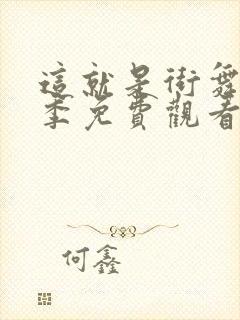 這就是街舞
季免費觀看
何鑫